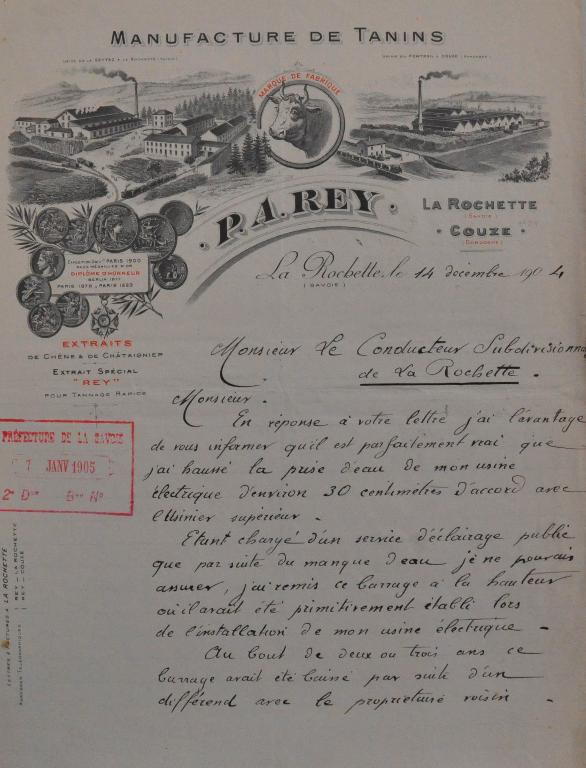 MANUFACTURE DE TANINS
USINE DE LA SEYTAZ À LA ROCHETTE (SAVOIE)
USINE DU PONTEIL À COUZE (DORDOGNE)
MARQUE DE FABRIQUE
P. A. REY.
LA ROCHETTE
(SAVOIE)
COUZE
(DORDOGNE)
EXPOSITION UNIV. PARIS 1900
DEUX MÉDAILLES D'OR
DIPLÔME D'HONNEUR
BERLIN 1877
PARIS 1878, PARIS 1889
La Rochette, le 14 décembre 1904
(SAVOIE)
EXTRAITS
DE CHÊNE & DE CHÂTAIGNIER
EXTRAIT SPÉCIAL
"REY"
POUR TANNAGE RAPIDE
Monsieur Le Conducteur Subdivisionnai
de La Rochette.
Monsieur.
En réponse à votre lettre j'ai l'avantage
de vous informer qu'il est parfaitement vrai que
j'ai haussé la prise d'eau de mon usine
électrique d'environ 30 centimètres d'accord avec
l'Usinier supérieur.
Etant chargé d'un service d'éclairage public
que par suite du manque d'eau je ne pouvais
assurer, j'ai remis ce barrage à la hauteur
où il avait été primitivement établi lors
de l'installation de mon usine électrique.
Au bout de deux ou trois ans ce
barrage avait été baissé par suite d'un
différend avec le propriétaire voisin
PRÉFECTURE DE LA SAVOIE
7 JANV 1905
2e Don Bau No
LETTRES & FACTURES À LA ROCHETTE
ADRESSES TÉLÉGRAPHIQUES
REY - LA ROCHETTE
REY - COUZE